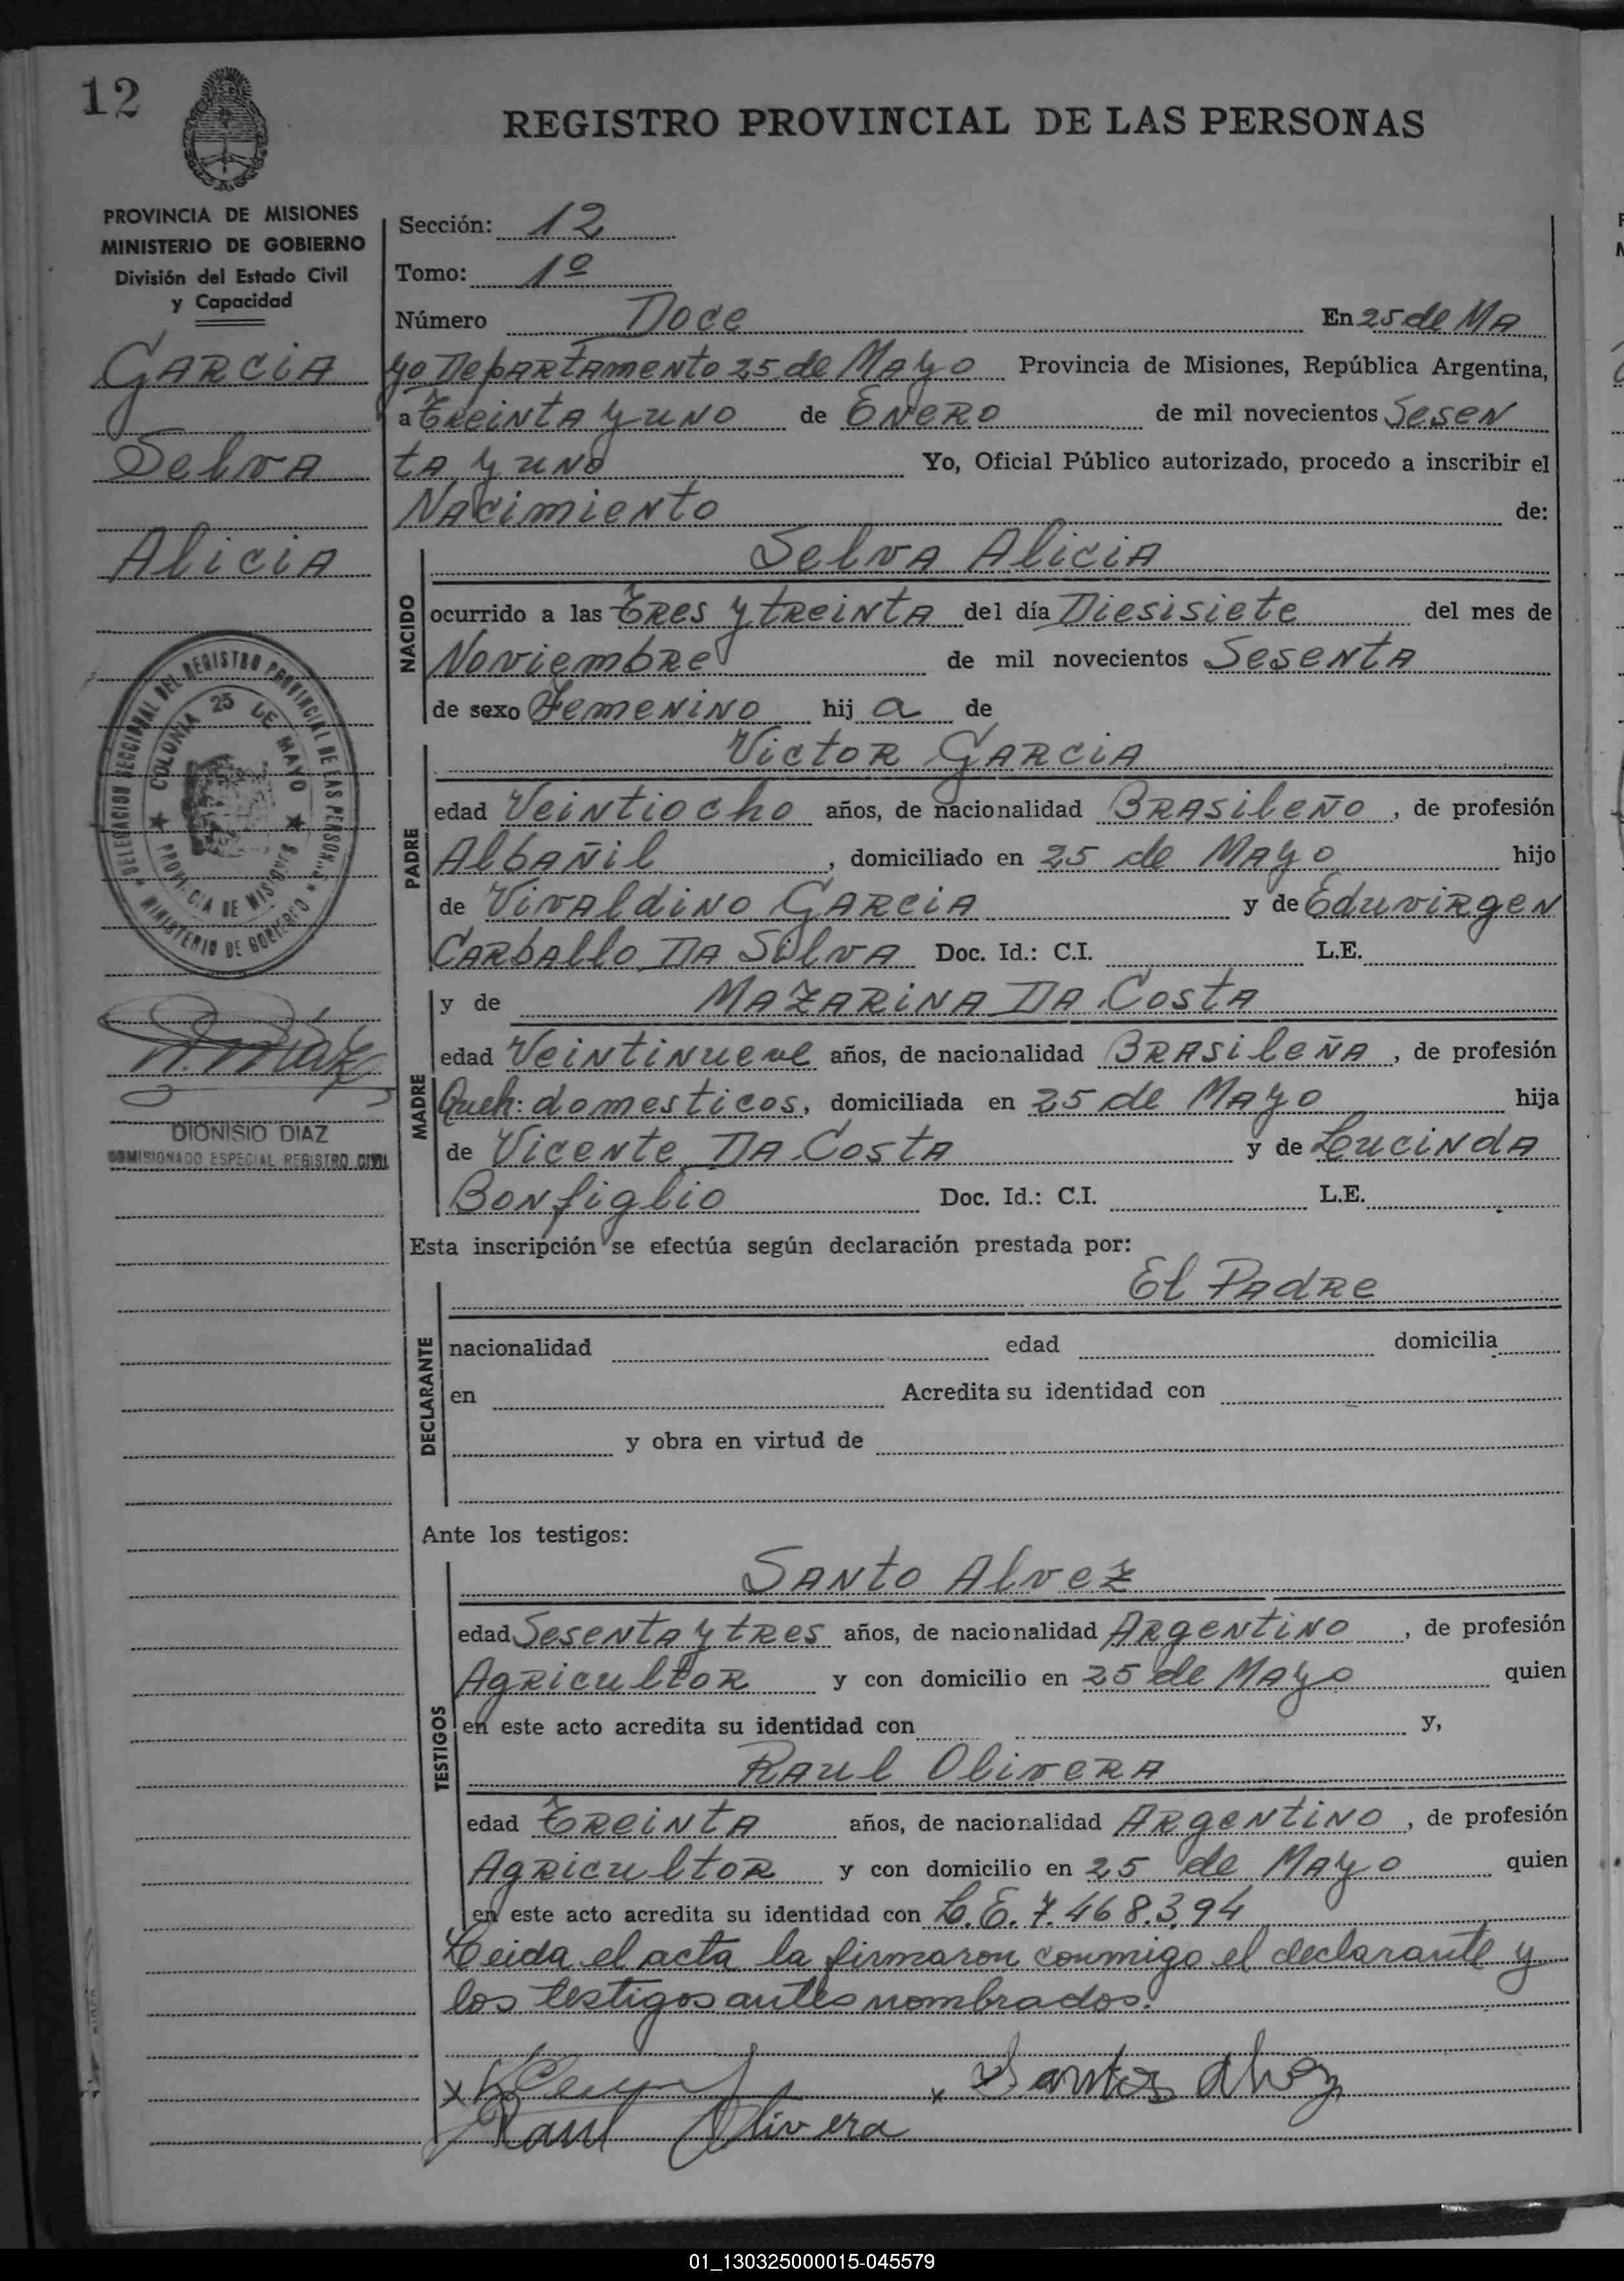 12
REGISTRO PROVINCIAL DE LAS PERSONAS
PROVINCIA DE MISIONES
MINISTERIO DE GOBIERNO
División del Estado Civil
y Capacidad
Garcia
Selva
Alicia
DELEGACION SECCIONAL DEL REGISTRO PROVINCIAL DE LAS PERSONAS
★ COLONIA 25 DE MAYO ★
PROVINCIA DE MISIONES
★ MINISTERIO DE GOBIERNO ★
D. Diaz
DIONISIO DIAZ
COMISIONADO ESPECIAL REGISTRO CIVIL
Sección: 12
Tomo: 1º
Número Doce En 25 de Ma
yo Departamento 25 de Mayo Provincia de Misiones, República Argentina,
a Treinta y uno de Enero de mil novecientos Sesen
ta y uno Yo, Oficial Público autorizado, procedo a inscribir el
Nacimiento de:
NACIDO
Selva Alicia
ocurrido a las Tres y treinta del día Diesisiete del mes de
Noviembre de mil novecientos Sesenta
de sexo Femenino hij a de
PADRE
Victor Garcia
edad Veintiocho años, de nacionalidad Brasileño, de profesión
Albañil, domiciliado en 25 de Mayo hijo
de Vivaldino Garcia y de Eduvirgen
Carballo Da Silva Doc. Id.: C.I. L.E.
MADRE
y de Mazarina Da Costa
edad Veintinueve años, de nacionalidad Brasileña, de profesión
Queh: domesticos, domiciliada en 25 de Mayo hija
de Vicente Da Costa y de Lucinda
Bonfiglio Doc. Id.: C.I. L.E.
Esta inscripción se efectúa según declaración prestada por:
DECLARANTE
El Padre
nacionalidad edad domicilia
en Acredita su identidad con
y obra en virtud de
Ante los testigos:
TESTIGOS
Santo Alvez
edad Sesenta y tres años, de nacionalidad Argentino, de profesión
Agricultor y con domicilio en 25 de Mayo quien
en este acto acredita su identidad con y,
Raul Olivera
edad Treinta años, de nacionalidad Argentino, de profesión
Agricultor y con domicilio en 25 de Mayo quien
en este acto acredita su identidad con L.E. 7.468.394
Leida el acta la firmaron conmigo el declarante y
los testigos antes nombrados.
x x Santos Alvez
Raul Olivera
01_130325000015-045579